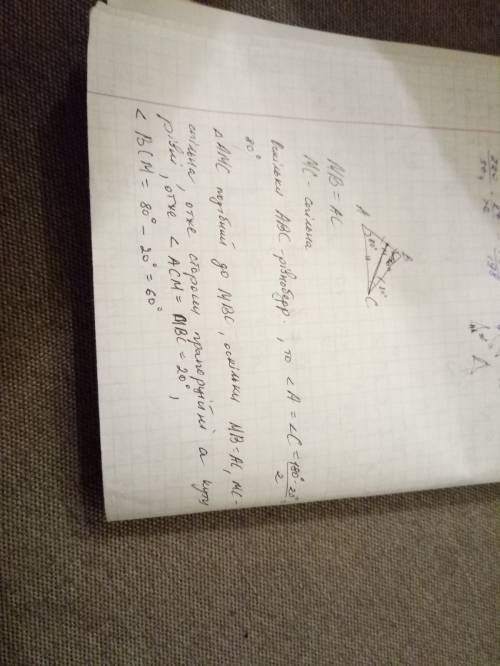 A
B
C
MB = AC
MC - спільна
Оскільки ABC - рівнобедр., то < A = < C = 180° - 20° / 2
80°
△ AMC подібний до MBC, оскільки MB = AC, MC -
спільна, отже сторони пропорційні а кути
рівні, отже < ACM = MBC = 20°,
< BCM = 80° - 20° = 60°